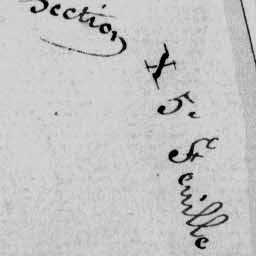 Section X
5.e F.e
euille